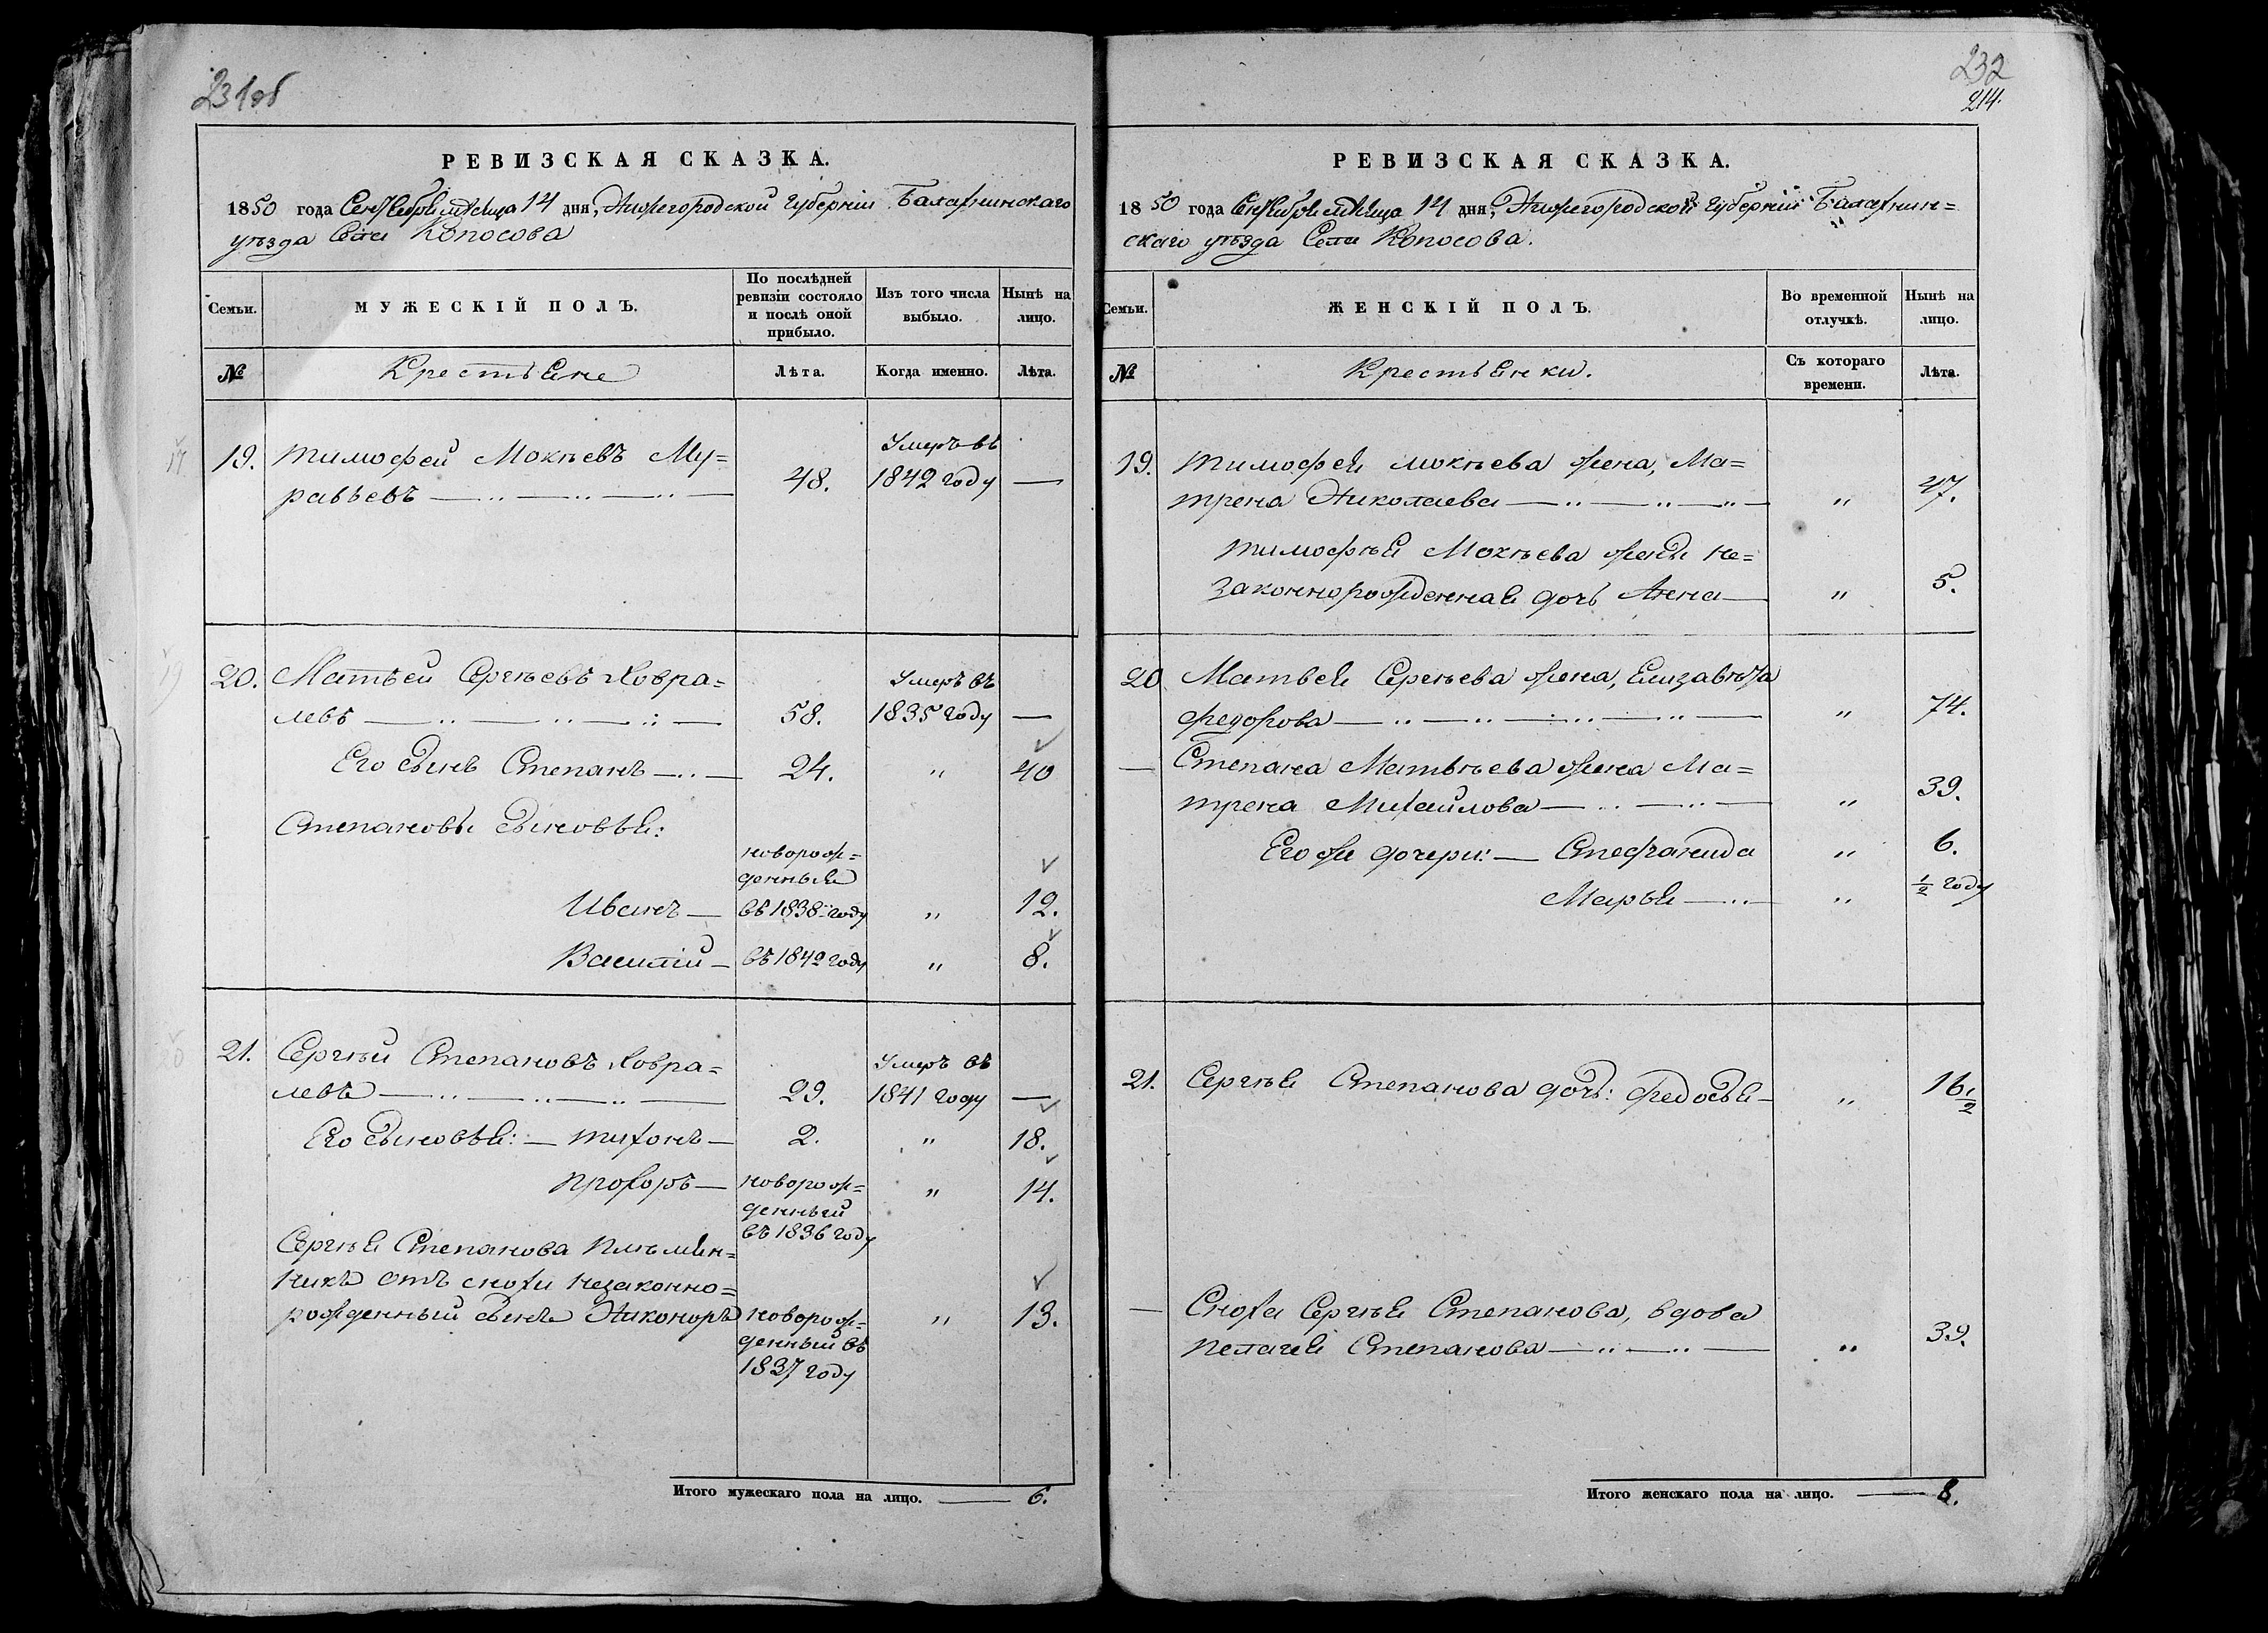 231об
РЕВИЗСКАЯ СКАЗКА.
1850 года Сентября мѣсяца 14 дня, Нижегородской Губерніи Балахнинскаго
уѣзда Села Копосова
Семьи.
МУЖЕСКІЙ ПОЛЪ.
По послѣдней
ревизіи состояло
и послѣ оной
прибыло.
Изъ того числа
выбыло.
Нынѣ на
лицо.
№
Крестьяне
Лѣта.
Когда именно.
Лѣта.
17
19. Тимофей Мокѣевъ Му=
равьевъ
48.
Умеръ въ
1842 году
—
19
20. Матвей Сергѣевъ Ковра=
левъ
58.
Умеръ въ
1835 году
—
Его сынъ Степанъ — 24. " 40
Степановы сыновья:
новорож=
денныя
Иванъ — въ 1838 году " 12.
Василій — въ 1842 году " 8.
20
21. Сергѣй Степановъ Ковра=
левъ
29.
Умеръ въ
1841 году
—
Его сыновья: — Тихонъ — 2. " 18.
Прохоръ — новорож=
денный
въ 1836 году
" 14.
Сергѣя Степанова племян=
никъ отъ снохи незаконно=
рожденный сынъ Никоноръ
новорож=
денный въ
1837 году
" 13.
Итого мужескаго пола на лицо. — 6.
232
214.
РЕВИЗСКАЯ СКАЗКА.
1850 года Сентября мѣсяца 14 дня, Нижегородской Губерніи Балахнин=
скаго уѣзда Села Копосова.
Семьи.
ЖЕНСКІЙ ПОЛЪ.
Во временной
отлучкѣ.
Нынѣ на
лицо.
№
Крестьянки.
Съ котораго
времени.
Лѣта.
19. Тимофея Мокѣева жена, Ма=
трена Николаева — " 47.
Тимофѣя Мокѣева жены не=
законнорожденная дочь Анна — " 5.
20 Матвея Сергѣева жена, Елизавѣта
Федорова — " 74.
— Степана Матвѣева жена Ма=
трена Михайлова — " 39.
Его же дочери: — Стефанида " 6.
Марья — " ½ году
21. Сергѣя Степанова дочь: Федосья — " 16½
— Сноха Сергѣя Степанова, вдова
Пелагея Степанова — " 39.
Итого женскаго пола на лицо. — 8.